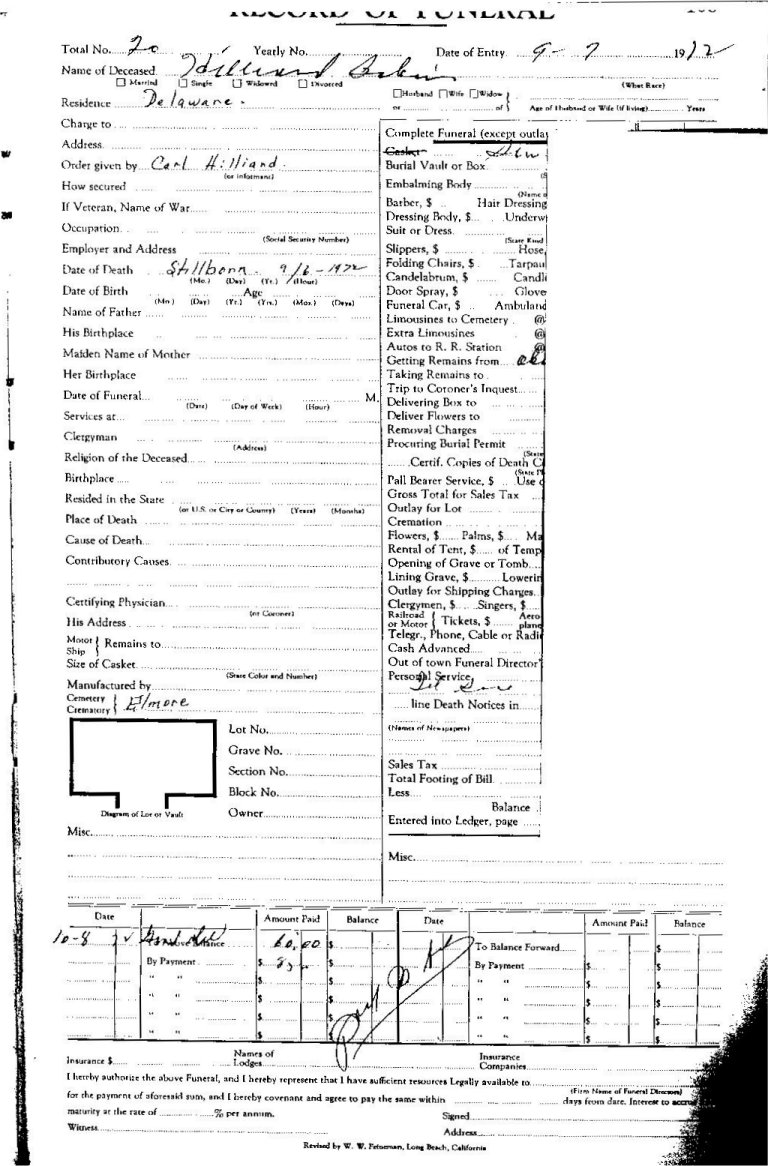 RECORD OF FUNERAL
Total No. 20 Yearly No. Date of Entry 9-7 1972
Name of Deceased Hilliard
Married Single Widowed Divorced
Husband Wife Widow
(What Race)
Residence Delaware.
or of Age of Husband or Wife (if living) Years
Charge to
Address
Order given by Carl Hilliard.
(or informant)
How secured
If Veteran, Name of War
Occupation
(Social Security Number)
Employer and Address
Date of Death Stillborn. 9/6-1972
(Mo.) (Day) (Yr.) (Hour)
Date of Birth Age
(Mo.) (Day) (Yr.) (Yrs.) (Mos.) (Days)
Name of Father
His Birthplace
Maiden Name of Mother
Her Birthplace
Date of Funeral M.
(Date) (Day of Week) (Hour)
Services at
Clergyman
(Address)
Religion of the Deceased
Birthplace
Resided in the State
(or U.S. or City or County) (Years) (Months)
Place of Death
Cause of Death
Contributory Causes
Certifying Physician
(or Coroner)
His Address
Motor Ship Remains to
Size of Casket
(State Color and Number)
Manufactured by
Cemetery Crematory Elmore
Lot No.
Grave No.
Section No.
Block No.
Owner
Diagram of Lot or Vault
Misc.
Complete Funeral (except outla
Casket
Burial Vault or Box
Embalming Body
(Name o
Barber, $ Hair Dressing
Dressing Body, $ Underw
Suit or Dress
(State Kind
Slippers, $ Hose,
Folding Chairs, $ Tarpau
Candelabrum, $ Candl
Door Spray, $ Glove
Funeral Car, $ Ambulanc
Limousines to Cemetery @
Extra Limousines @
Autos to R. R. Station @
Getting Remains from
Taking Remains to
Trip to Coroner's Inquest
Delivering Box to
Deliver Flowers to
Removal Charges
Procuring Burial Permit
(State
Certif. Copies of Death C
Pall Bearer Service, $ Use o
Gross Total for Sales Tax
Outlay for Lot
Cremation
Flowers, $ Palms, $ Ma
Rental of Tent, $ of Temp
Opening of Grave or Tomb
Lining Grave, $ Lowerin
Outlay for Shipping Charges
Clergymen, $ Singers, $
Railroad or Motor Tickets, $ Aero plane
Telegr., Phone, Cable or Radi
Cash Advanced
Out of town Funeral Director'
Personal Service
line Death Notices in
(Names of Newspapers)
Sales Tax
Total Footing of Bill
Less
Balance
Entered into Ledger, page
Misc.
Date Amount Paid Balance Date Amount Paid Balance
10-8 60.00 To Balance Forward $
By Payment $ $ By Payment $ $
" " $ $ " " $ $
" " $ $ " " $ $
" " $ $ " " $ $
" " $ $ " " $ $
Insurance $ Names of Lodges Insurance Companies
I hereby authorize the above Funeral, and I hereby represent that I have sufficient resources Legally available to
(Firm Name of Funeral Directors)
for the payment of aforesaid sum, and I hereby covenant and agree to pay the same within days from date. Interest to accrue
maturity at the rate of % per annum. Signed
Witness Address
Revised by W. W. Feineman, Long Beach, California